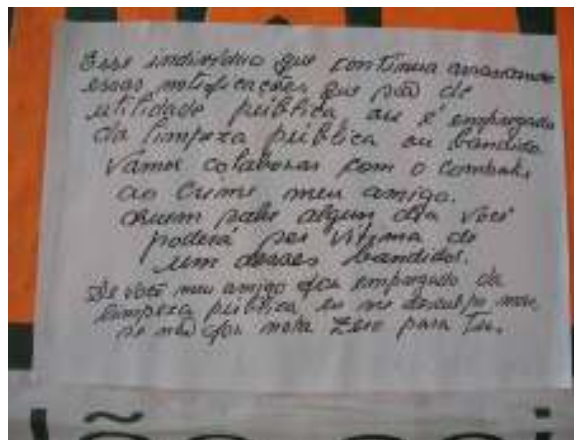 Esse indivíduo que continua arrancando
essas notificações que são de
utilidade pública ou é empregado
da limpeza pública ou bandido
Vamos colaborar com o combate
ao crime meu amigo.
Quem sabe algum dia você
poderá ser vítima de
um desses bandidos.
Se você meu amigo for empregado da
limpeza pública eu me desculpo mas
se não for nota Zero para Tu.
ão